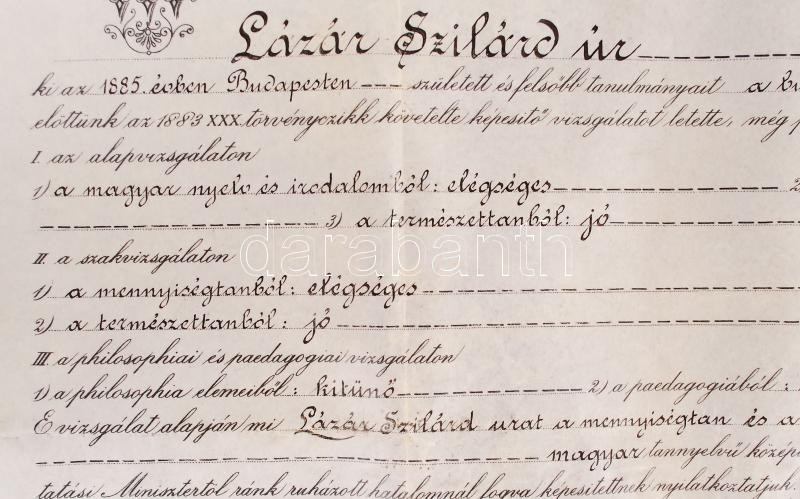 Lázár Szilárd úr
ki az 1885. évben Budapesten született és felsőbb tanulmányait a
előttünk az 1883 XXX. törvényczikk követelte képesítő vizsgálatot letette, még
I. az alapvizsgálaton
1) a magyar nyelv és irodalomból: elégséges 2
3) a természettanból: jó
II. a szakvizsgálaton
1) a mennyiségtanból: elégséges
2) a természettanból: jó
III. a philosophiai és paedagogiai vizsgálaton
1) a philosophia elemeiből: kitünő 2) a paedagogiából:
E vizsgálat alapján mi Lázár Szilárd urat a mennyiségtan és a
magyar tannyelvű közép
tatási Ministertől ránk ruházott hatalomnál fogva képesítettnek nyilatkoztatjuk.
darabanth